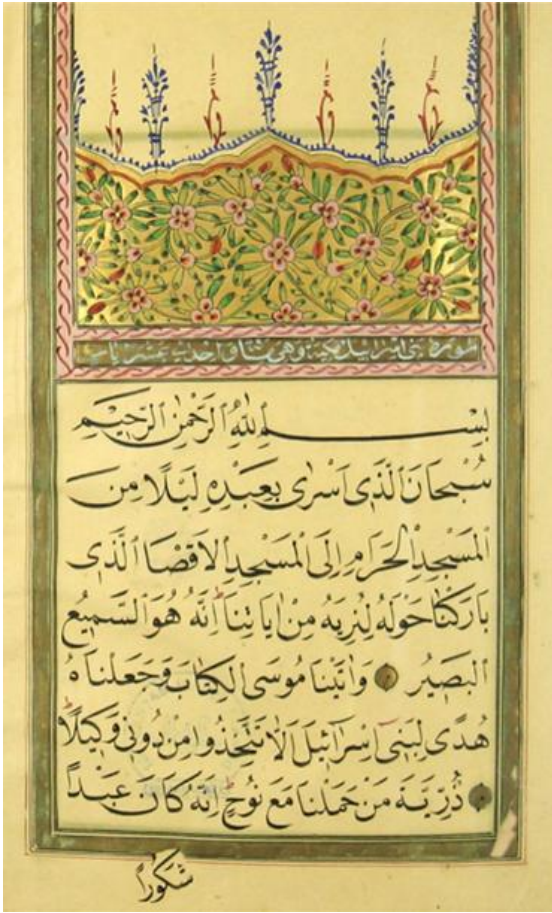 سورة بنى اسرائيل مكية وهى مائة واحدى عشر ايات
بِسْمِ ٱللّٰهِ ٱلرَّحْمٰنِ ٱلرَّحِيمِ
سُبْحَانَ ٱلَّذِى اَسْرٰى بِعَبْدِهِ لَيْلًا مِنَ
ٱلْمَسْجِدِ ٱلْحَرَامِ اِلَى ٱلْمَسْجِدِ ٱلْاَقْصَا ٱلَّذِى
بَارَكْنَا حَوْلَهُ لِنُرِيَهُ مِنْ اٰيَاتِنَا اِنَّهُ هُوَ ٱلسَّمِيعُ
ٱلْبَصِيرُ وَاٰتَيْنَا مُوسَى ٱلْكِتَابَ وَجَعَلْنَاهُ
هُدًى لِبَنِى اِسْرَائِيلَ اَلَّا تَتَّخِذُوا مِنْ دُونِى وَكِيلًا
ذُرِّيَّةَ مَنْ حَمَلْنَا مَعَ نُوحٍ اِنَّهُ كَانَ عَبْدًا
شَكُورًا